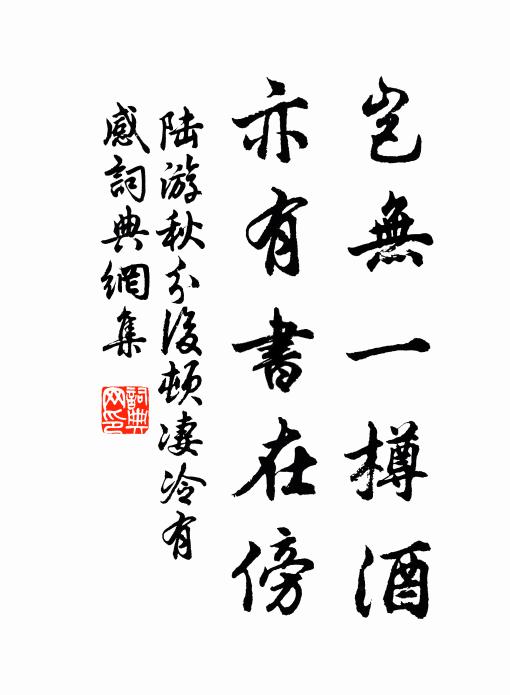 豈無一樽酒
亦有書在傍
陸游秋分後頓淒冷有
感詞典網集
詞典
网印